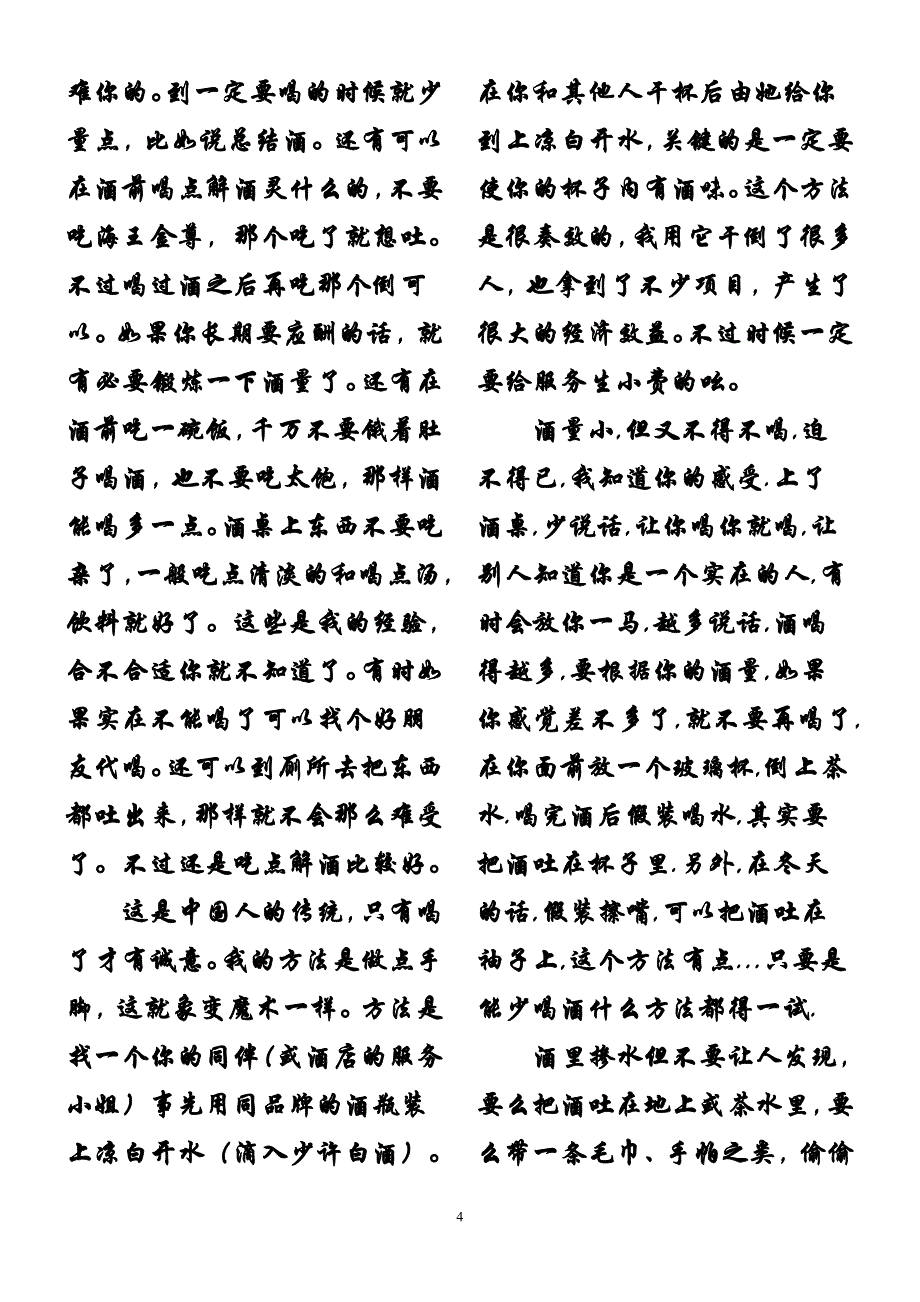 难你的。到一定要喝的时候就少
量点，比如说总结酒。还有可以
在酒前喝点解酒灵什么的，不要
吃海王金尊，那个吃了就想吐。
不过喝过酒之后再吃那个倒可
以。如果你长期要应酬的话，就
有必要锻炼一下酒量了。还有在
酒前吃一碗饭，千万不要饿着肚
子喝酒，也不要吃太饱，那样酒
能喝多一点。酒桌上东西不要吃
杂了，一般吃点清淡的和喝点汤，
饮料就好了。这些是我的经验，
合不合适你就不知道了。有时如
果实在不能喝了可以找个好朋
友代喝。还可以到厕所去把东西
都吐出来，那样就不会那么难受
了。不过还是吃点解酒比较好。
这是中国人的传统，只有喝
了才有诚意。我的方法是做点手
脚，这就象变魔术一样。方法是
找一个你的同伴（或酒店的服务
小姐）事先用同品牌的酒瓶装
上凉白开水（滴入少许白酒）。
在你和其他人干杯后由她给你
到上凉白开水，关键的是一定要
使你的杯子内有酒味。这个方法
是很奏效的，我用它干倒了很多
人，也拿到了不少项目，产生了
很大的经济效益。不过时候一定
要给服务生小费的呟。
酒量小，但又不得不喝，迫
不得已，我知道你的感受，上了
酒桌，少说话，让你喝你就喝，让
别人知道你是一个实在的人，有
时会放你一马，越多说话，酒喝
得越多，要根据你的酒量，如果
你感觉差不多了，就不要再喝了，
在你面前放一个玻璃杯，倒上茶
水，喝完酒后假装喝水，其实要
把酒吐在杯子里，另外，在冬天
的话，假装擦嘴，可以把酒吐在
袖子上，这个方法有点...只要是
能少喝酒什么方法都得一试.
酒里掺水但不要让人发现，
要么把酒吐在地上或茶水里，要
么带一条毛巾、手帕之类，偷偷
4